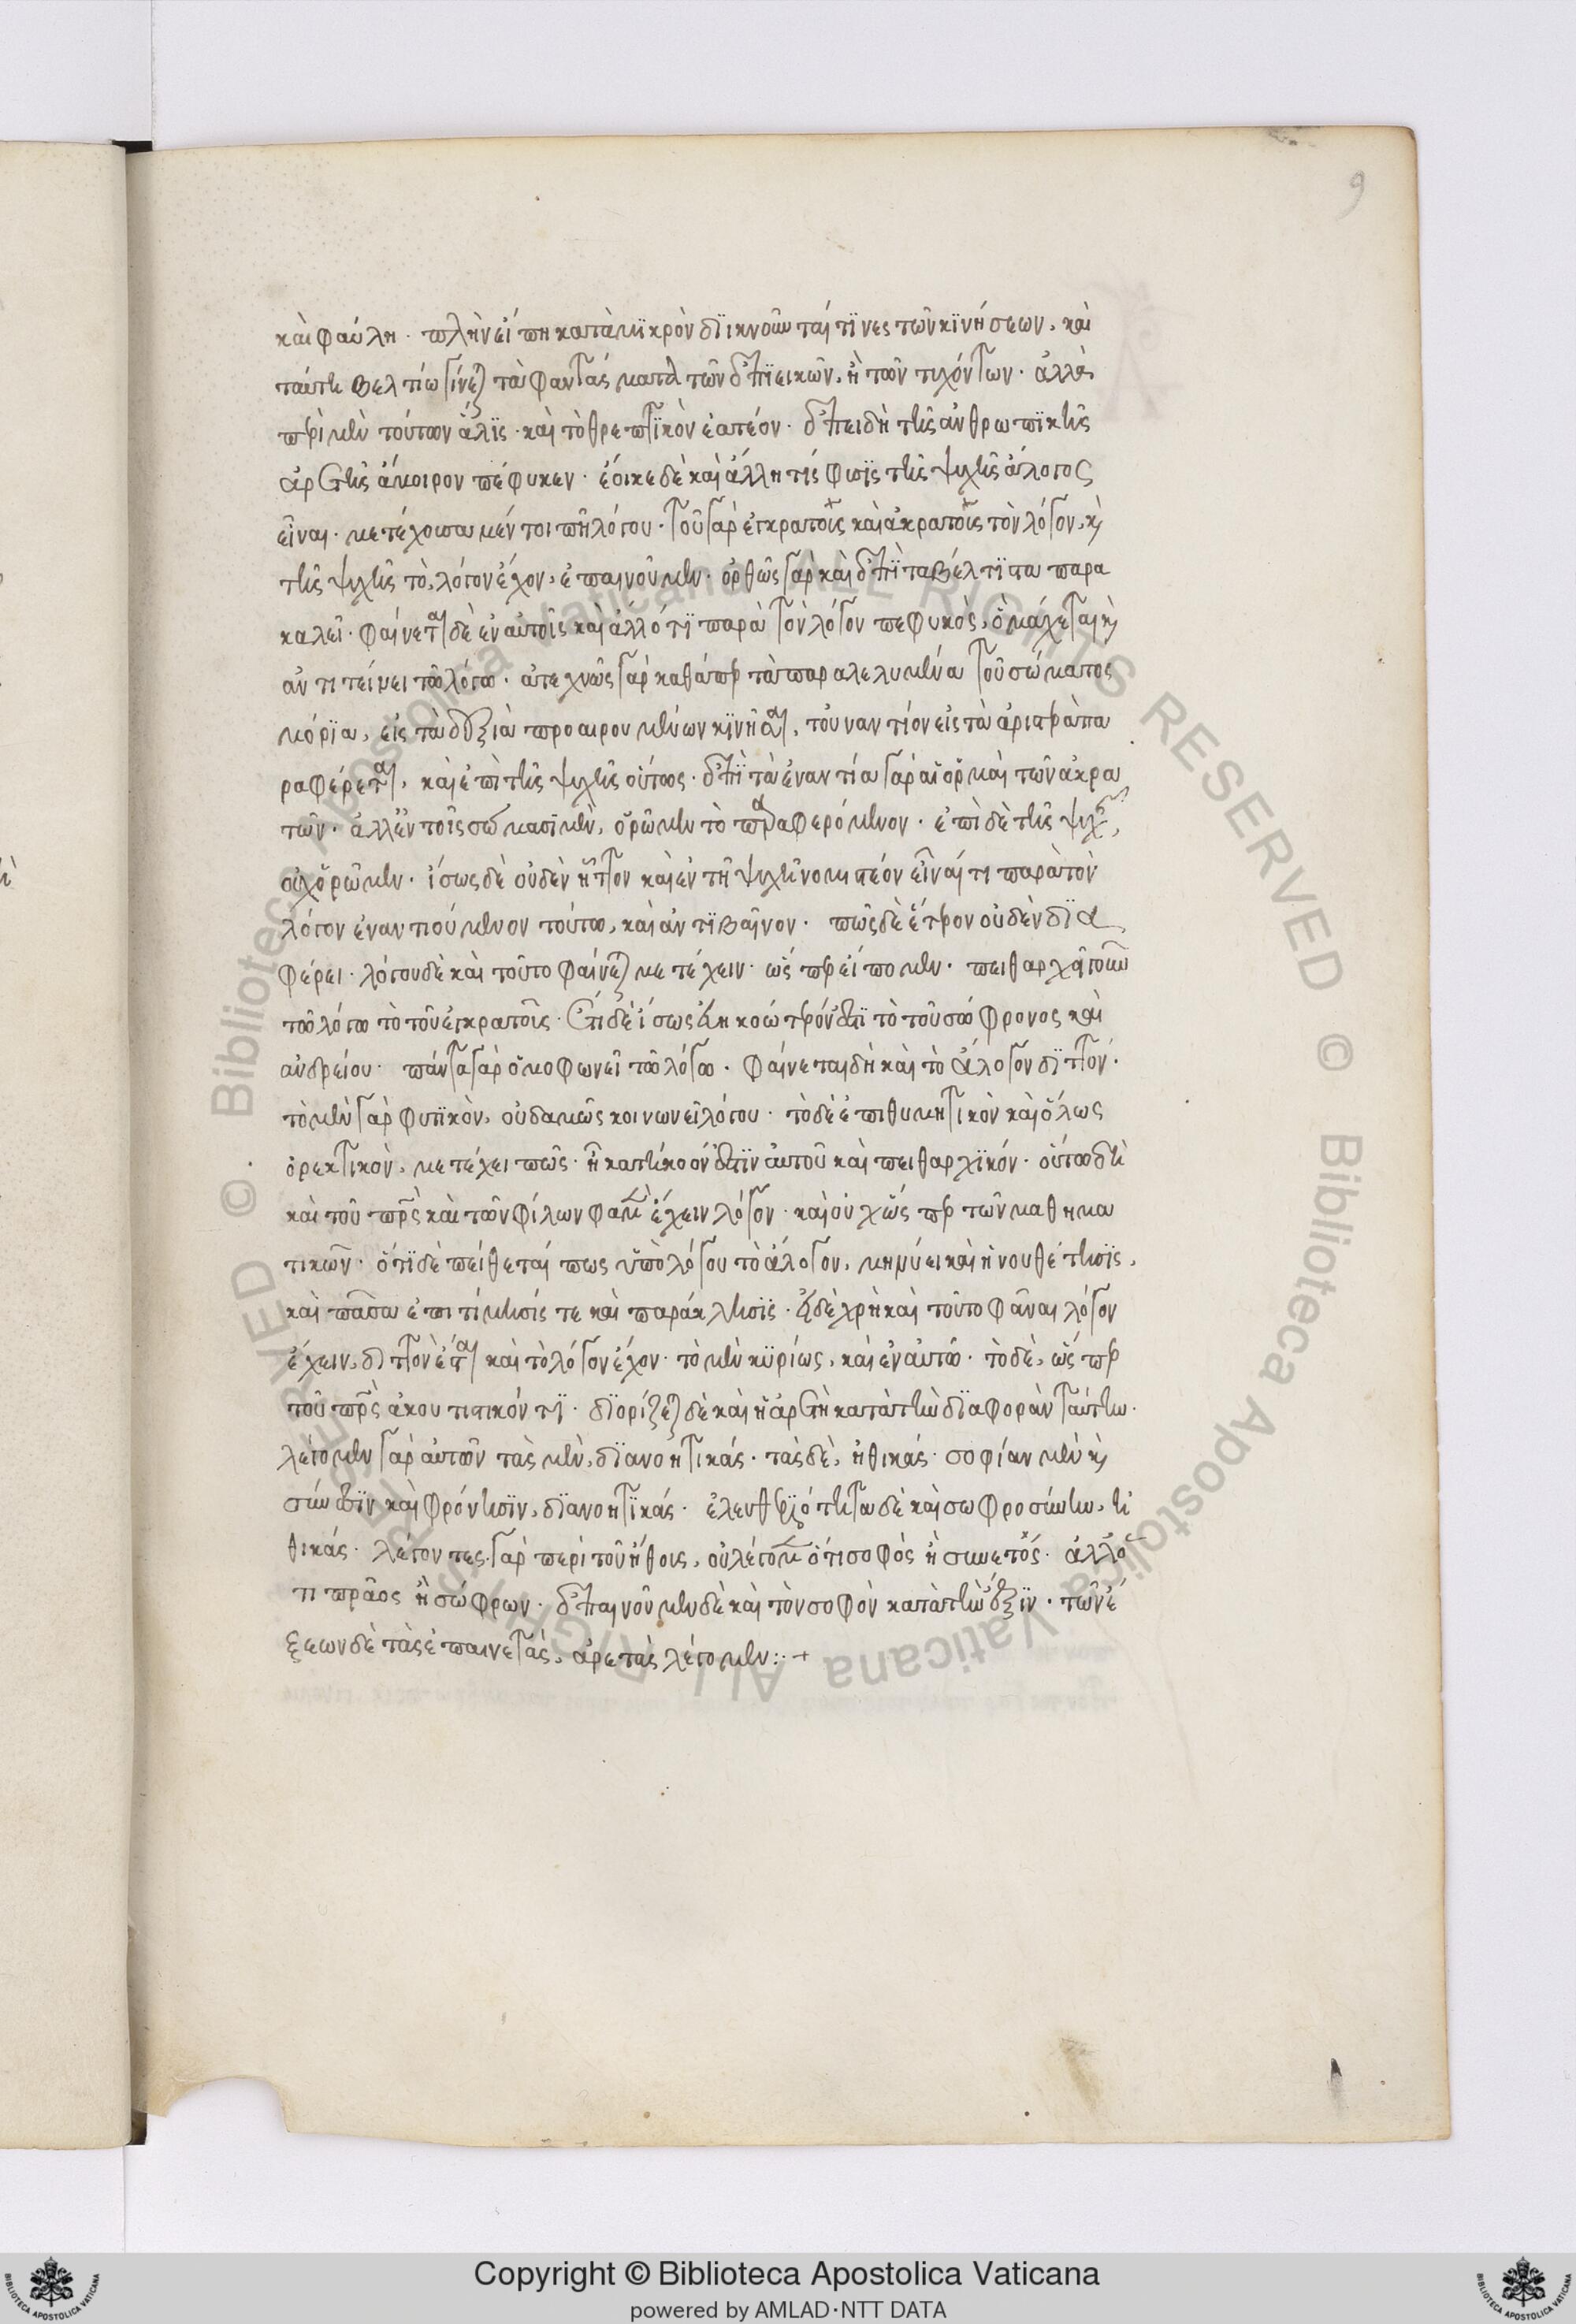 9
καὶ φαύλη· πλὴν εἴ πη κατὰ μικρὸν διικνοῦνταί τινες τῶν κινήσεων, καὶ
ταύτη βελτίω γίνεται τὰ φαντάσματα τῶν ἐπιεικῶν, ἢ τῶν τυχόντων· ἀλλὰ
περὶ μὲν τούτων ἅλις· καὶ τὸ θρεπτικὸν ἐατέον· ἐπειδὴ τῆς ἀνθρωπικῆς
ἀρετῆς ἄμοιρον πέφυκεν· ἔοικε δὲ καὶ ἄλλη τίς φύσις τῆς ψυχῆς ἄλογος
εἶναι· μετέχουσα μέν τοι πῆ λόγου· τοῦ γὰρ ἐγκρατοῦς καὶ ἀκρατοῦς τὸν λόγον, κ
τῆς ψυχῆς τὸ, λόγον ἔχον, ἐπαινοῦμεν· ὀρθῶς γὰρ καὶ ἐπὶ τὰ βέλτιστα παρα
καλεῖ· φαίνεται δὲ ἐν αὐτοῖς καὶ ἄλλό τι παρὰ τὸν λόγον πεφυκὸς, ὃ μάχεται κ
ἀντιτείνει τῶ λόγω· ἀτεχνῶς γὰρ καθάπερ τὰ παραλελυμένα τοῦ σώματος
μόρια, εἰς τὰ δεξιὰ προαιρουμένων κινῆσαι, τοὐναντίον εἰς τὰ ἀριστερὰ πα
ραφέρεται, καὶ ἐπὶ τῆς ψυχῆς οὕτως· ἐπὶ τὰ ἐναντία γὰρ αἱ ὁρμαὶ τῶν ἀκρα
τῶν· ἀλλ' ἐν τοῖς σώμασι μὲν, ὁρῶμεν τὸ παραφερόμενον· ἐπὶ δὲ τῆς ψυχῆς,
οὐχ ὁρῶμεν· ἴσως δὲ οὐδὲν ἧττον καὶ ἐν τῆ ψυχῆ νομιστέον εἶναί τι παρὰ τὸν
λόγον ἐναντιούμενον τούτω, καὶ ἀντιβαῖνον· πῶς δὲ ἕτερον οὐδὲν δια
φέρει· λόγου δὲ καὶ τοῦτο φαίνεται μετέχειν· ὥσπερ εἴπομεν· πειθαρχεῖ γοῦν
τῶ λόγω τὸ τοῦ ἐγκρατοῦς· ἔτι δὲ ἴσως εὐηκοώτερόν ἐστι τὸ τοῦ σώφρονος καὶ
ἀνδρείου· πάντα γὰρ ὁμοφωνεῖ τῶ λόγω· φαίνεται δὴ καὶ τὸ ἄλογον διττόν·
τὸ μὲν γὰρ φυτικὸν, οὐδαμῶς κοινωνεῖ λόγου· τὸ δὲ ἐπιθυμητικὸν καὶ ὅλως
ὀρεκτικὸν, μετέχει πῶς· ἧ κατήκοόν ἐστιν αὐτοῦ καὶ πειθαρχικόν· οὕτω δὴ
καὶ τοῦ πρς καὶ τῶν φίλων φαμὲν ἔχειν λόγον· καὶ οὐχ ὥσπερ τῶν μαθημα
τικῶν· ὅτι δὲ πείθεταί πως ὑπὸ λόγου τὸ ἄλογον, μηνύει καὶ ἡ νουθέτησις,
καὶ πᾶσα ἐπιτίμησίς τε καὶ παράκλησις· εἰ δὲ χρὴ καὶ τοῦτο φᾶναι λόγον
ἔχειν, διττὸν ἔσται καὶ τὸ λόγον ἔχον· τὸ μὲν κυρίως, καὶ ἐν αὑτῶ· τὸ δὲ, ὥσπερ
τοῦ πρς ἀκουστικόν τι· διορίζεται δὲ καὶ ἡ ἀρετὴ κατὰ τὴν διαφορὰν ταύτην·
λέγομεν γὰρ αὐτῶν τὰς μὲν, διανοητικάς· τὰς δὲ, ἠθικάς· σοφίαν μὲν κ
σύνεσιν καὶ φρόνησιν, διανοητικάς· ἐλευθεριότητα δὲ καὶ σωφροσύνην, ἠ
θικάς· λέγοντες γὰρ περὶ τοῦ ἤθους, οὐ λέγομεν ὅτι σοφὸς ἢ συνετός· ἀλλ' ὅ
τι πρᾶος ἢ σώφρων· ἐπαινοῦμεν δὲ καὶ τὸν σοφὸν κατὰ τὴν ἕξιν· τῶν ἕ
ξεων δὲ τὰς ἐπαινετὰς, ἀρετὰς λέγομεν:· +
Copyright © Biblioteca Apostolica Vaticana
powered by AMLAD·NTT DATA
© Biblioteca Apostolica Vaticana ALL RIGHTS RESERVED